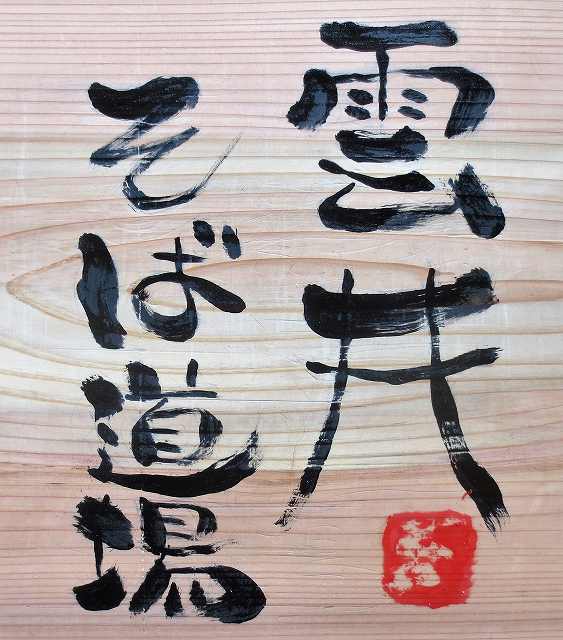 雲井
そば道場